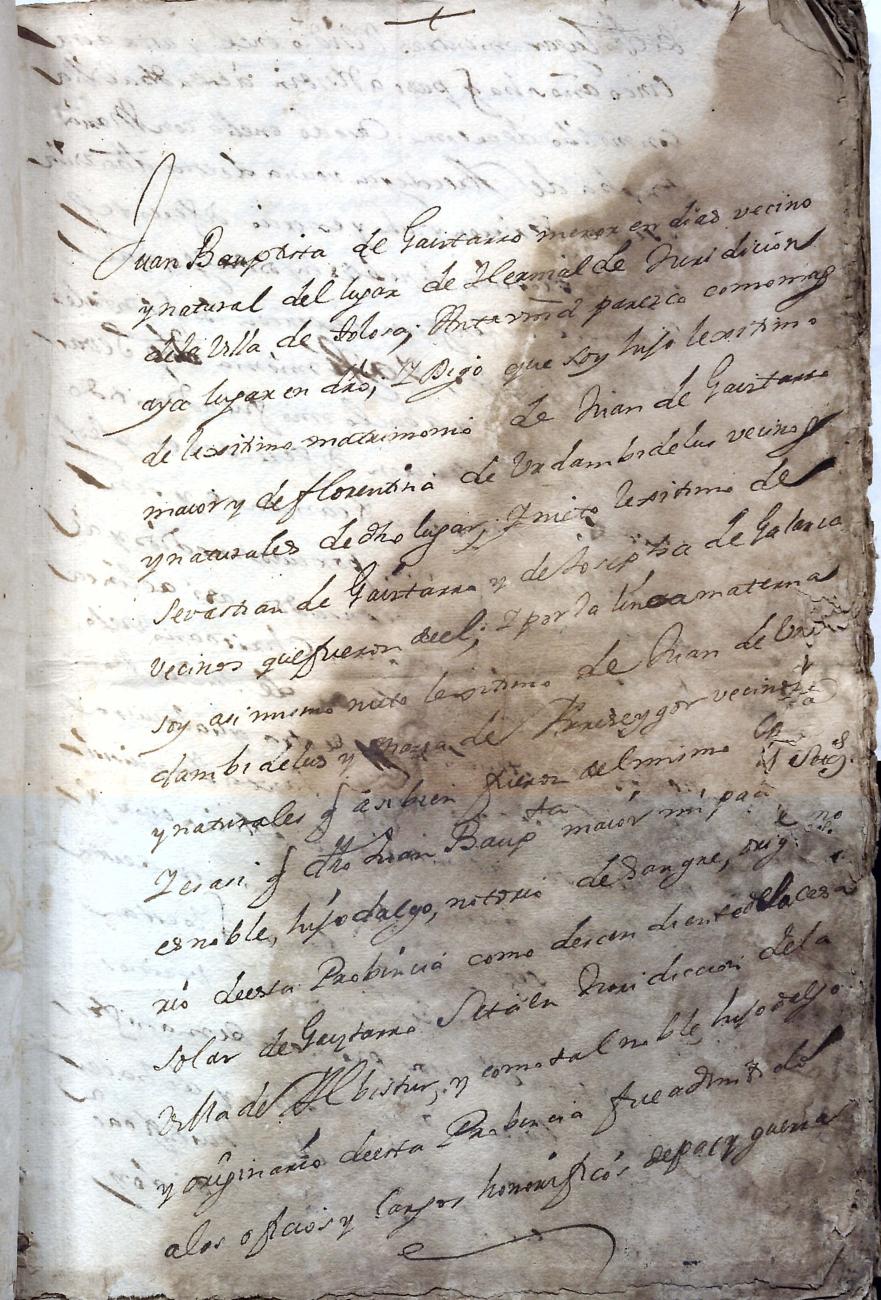 +
Juan Bauptista de Gaintarro menor en dias vecino
y natural del lugar de Hernialde Juridicion
dela Villa de Tolosa; Ante vmd parezco como mas
aya lugar en dro; Y Digo que soy hijo lexitimo
de lexitimo matrimonio de Juan de Gaintarro
maior y de florentina de Vrdambidelus vecinos
y naturales de dho lugar; Y nieto lexitimo de
Sevastian de Gaintarro y de Josepha de Galarza
vecinos que fueron de el; Y por la linea materna
soy asi mismo nieto lexitimo de Juan de Vr
dambidelus y maria de vecinos
y naturales q asi bien fueron del mismo
Y es asi q dho Juan Baupta maior mi pad
es noble, hijodalgo, notorio de sangre, orig
rio deesta Probincia como descendiente dela casa
solar de Gayntarro Sita en Jurisdiccion dela
Villa de Albistur, y como tal noble hijodalgo
y originario deesta Probincia fue admitido
alos oficios y Cargos honorificos depaz y guerra